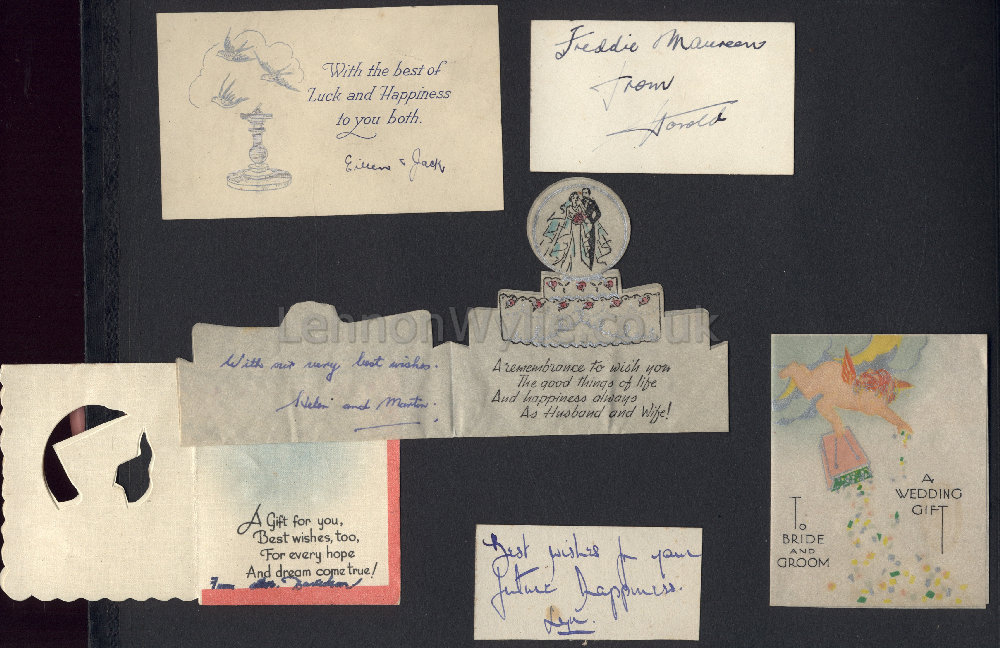 With the best of
Luck and Happiness
to you both.
Eileen & Jack
Freddie Maureen
From
Harold
LennonWylie.co.uk
With our very best wishes.
Helen and Martin.
A remembrance to wish you
The good things of life
And happiness always
As Husband and Wife!
A Gift for you,
Best wishes, too,
For every hope
And dream come true!
From Mrs. Davidson
Best wishes for your
future happiness.
A
WEDDING
GIFT
To
BRIDE
AND
GROOM